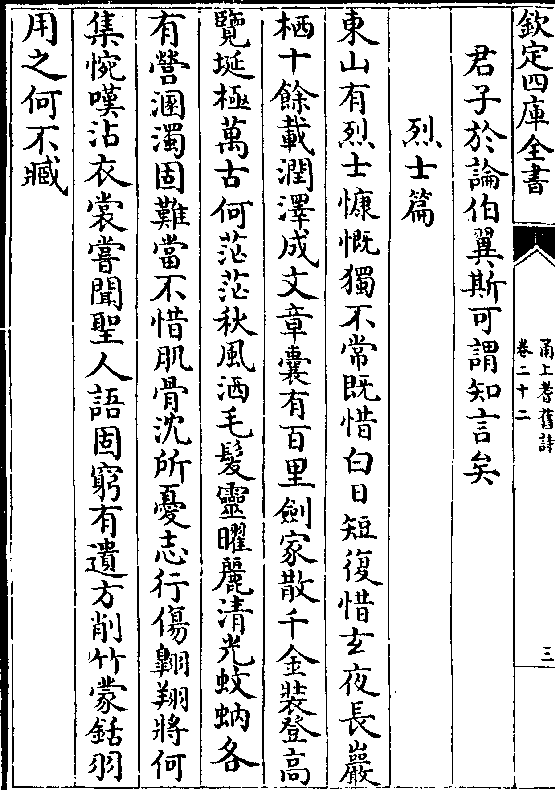 欽定四庫全書
甬上耆舊詩
卷二十二
三
君子於論伯翼斯可謂知言矣
烈士篇
東山有烈士慷慨獨不常既惜白日短復惜玄夜長巖
栖十餘載潤澤成文章囊有百里劍家散千金裝登高
覽埏極萬古何茫茫秋風洒毛髮靈曜麗清光蚊蚋各
有營溷濁固難當不惜肌骨沈所憂志行傷翺翔將何
集惋嘆沾衣裳嘗聞聖人語固窮有遺方削竹蒙銛羽
用之何不臧